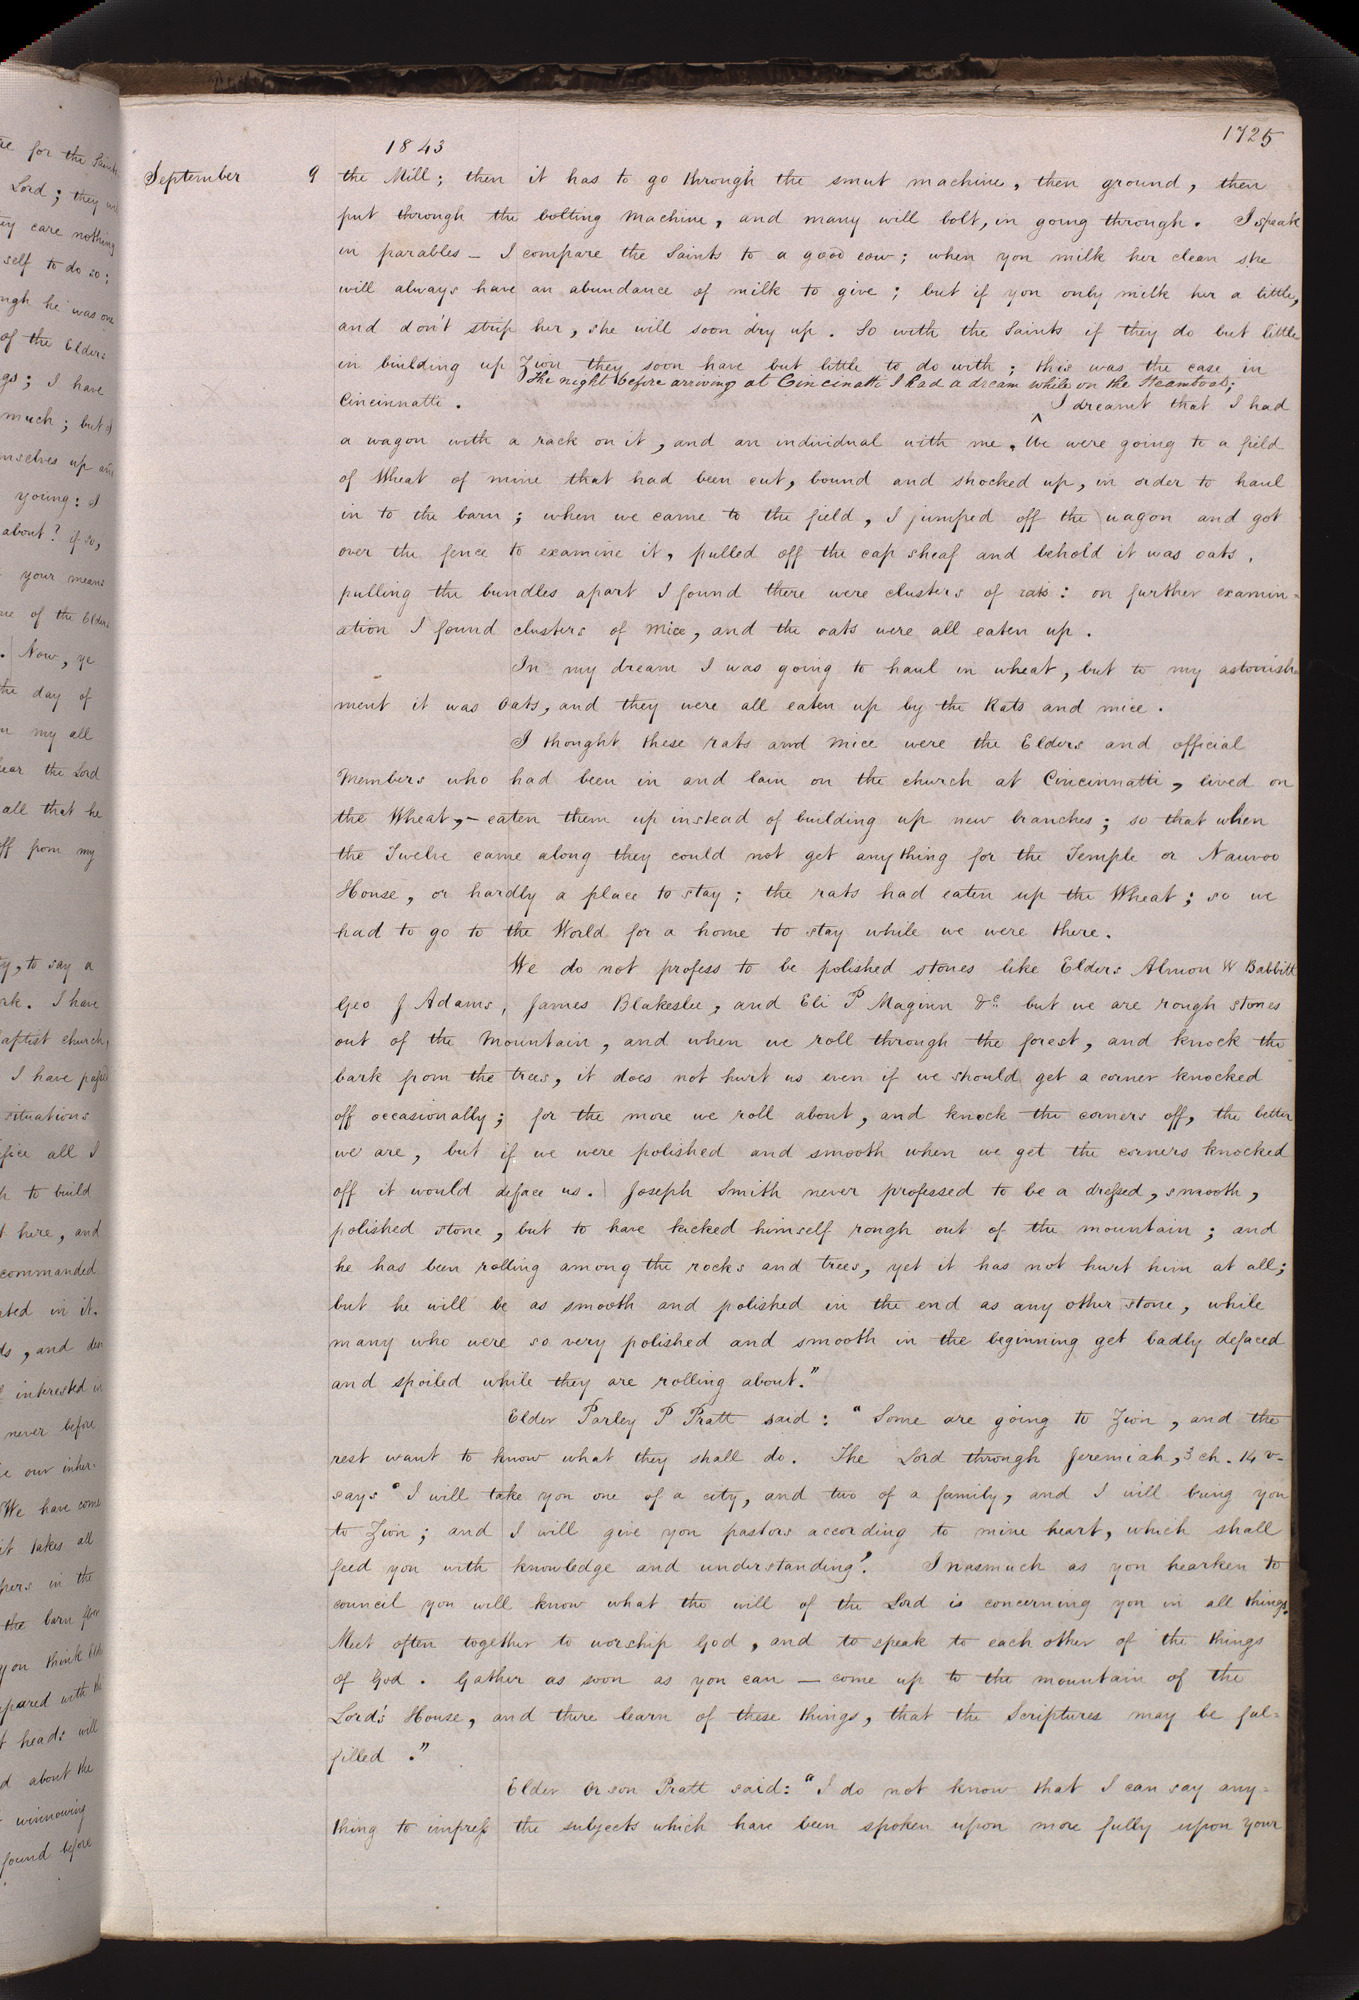 1725
1843
September 9 the Mill; then it has to go through the smut machine, then ground, then
put through the bolting machine, and many will bolt, in going through. I speak
in parables — I compare the Saints to a good cow; when you milk her clean she
will always have an abundance of milk to give; but if you only milk her a little,
and don't strip her, she will soon dry up. So with the Saints if they do but little
in building up Zion they soon have but little to do with; this was the case in
The night before arriving at Cincinatti I had a dream while on the Steamboat;
Cincinnatti. ^ I dreamt that I had
a wagon with a rack on it, and an individual with me. We were going to a field
of Wheat of mine that had been cut, bound and shocked up, in order to haul
in to the barn; when we came to the field, I jumped off the wagon and got
over the fence to examine it, pulled off the cap sheaf and behold it was oats,
pulling the bundles apart I found there were clusters of rats: on further examin=
ation I found clusters of mice, and the oats were all eaten up.
In my dream I was going to haul in wheat, but to my astonish=
ment it was Oats, and they were all eaten up by the Rats and mice.
I thought these rats and mice were the Elders and official
Members who had been in and lain on the church at Cincinnatti, lived on
the Wheat, — eaten them up instead of building up new branches; so that when
the Twelve came along they could not get anything for the Temple or Nauvoo
House, or hardly a place to stay; the rats had eaten up the Wheat; so we
had to go to the World for a home to stay while we were there.
We do not profess to be polished stones like Elders Almon W Babbitt
Geo J Adams, James Blakeslee, and Eli P Maginn &c. but we are rough stones
out of the Mountain, and when we roll through the forest, and knock the
bark from the trees, it does not hurt us even if we should get a corner knocked
off occasionally; for the more we roll about, and knock the corners off, the better
we are, but if we were polished and smooth when we get the corners knocked
off it would deface us. Joseph Smith never professed to be a dressed, smooth,
polished stone, but to have kicked himself rough out of the mountain; and
he has been rolling among the rocks and trees, yet it has not hurt him at all;
but he will be as smooth and polished in the end as any other stone, while
many who were so very polished and smooth in the beginning get badly defaced
and spoiled while they are rolling about."
Elder Parley P Pratt said: "Some are going to Zion, and the
rest want to know what they shall do. The Lord through Jeremiah, 3 ch. 14 v-
says 'I will take you one of a city, and two of a family, and I will bring you
to Zion; and I will give you pastors according to mine heart, which shall
feed you with knowledge and understanding'. Inasmuch as you hearken to
council you will know what the will of the Lord is concerning you in all things.
Meet often together to worship God, and to speak to each other of the things
of God. Gather as soon as you can — come up to the mountain of the
Lord's House, and there learn of these things, that the Scriptures may be ful=
filled."
Elder Orson Pratt said: "I do not know that I can say any=
thing to impress the subjects which have been spoken upon more fully upon your